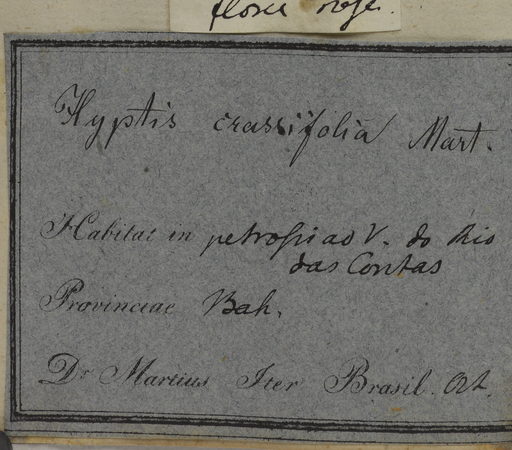 flore
Hyptis crassifolia Mart.
Habitat in petrosis ad V. do Rio
das Contas
Provinciae Bah.
Dr Martius Iter Brasil.